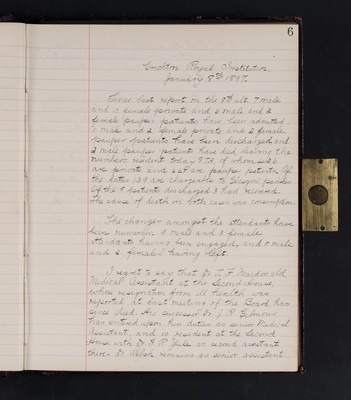 6
Crichton Royal Institution
January 8th 1897.
Since last report on the 8th ult. 7 male
and female private and 6 male and 2
female pauper patients have been admitted.
male and 2 female private and 2 female
pauper patients have been discharged and
2 male pauper patients have died, leaving the
numbers resident today 773 of whom
are private and are pauper patients. Of
the latter 139 are chargeable to parishes
Of the patients discharged 3 had recovered.
The cause of death in both cases was consumption.
The changes amongst the attendants have
been numerous, 4 male and 3 female
attendants having been engaged, and male
and 2 females having left.
I regret to say that Dr. T. F. Macdonald
Medical Assistant at the Second House,
whose resignation from ill health was
reported at last meeting of the Board has
since died. His successor Dr. J. R. Gilmour
has entered upon his duties as senior Medical
Assistant, and is resident at the Second
House with Dr. as second assistant
there. Dr. Welsh remains as senior assistant